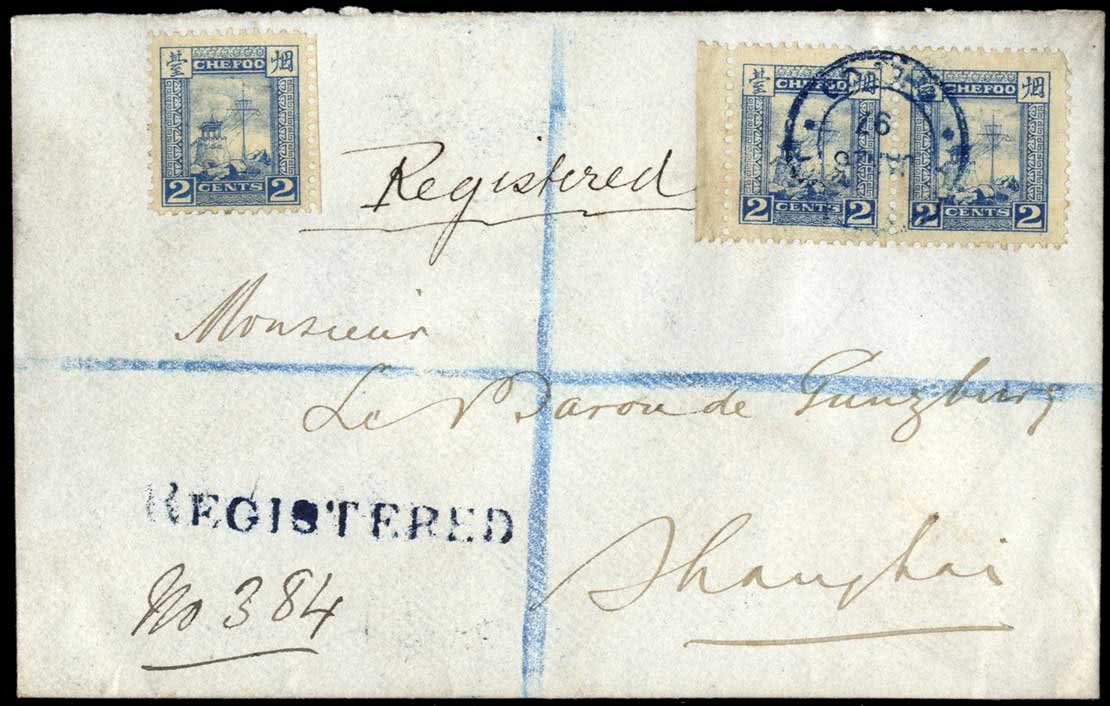 臺 CHEFOO 烟
2 CENTS 2
臺 CHEFOO 烟
2 CENTS 2
CHEFOO 烟
2 CENTS 2
97
Registered
Monsieur
Le Baron de Gunzburg
REGISTERED
Shanghai
No 384